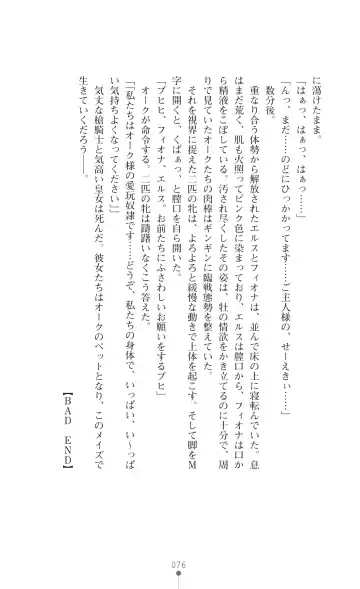 に蕩けたまま。
「はぁっ、はぁっ、はぁっ……」
「んっ、まだ……のどにひっかかってます……ご主人様の、せーえきぃ……」
数分後。
重なり合う体勢から解放されたエルスとフィオナは、並んで床の上に寝転んでいた。息
はまだ荒く、肌も火照ってピンク色に染まっており、エルスは膣口から、フィオナは口か
ら精液をこぼしている。汚され尽くしたその姿は、牡の情欲をかき立てるのに十分で、周
りで見ていたオークたちの肉棒はギンギンに臨戦態勢を整えていた。
それを視界に捉えた二匹の牝は、よろよろと緩慢な動きで上体を起こす。そして脚をM
字に開くと、くぱぁっ、と膣口を自ら開いた。
「ブヒヒ、フィオナ、エルス。お前たちにふさわしいお願いをするブヒ」
オークが命令する。二匹の牝は躊躇いなくこう答えた。
「「私たちはオーク様の愛玩奴隷です……どうぞ、私たちの身体で、いっぱい、い〜っぱ
い気持ちよくなってください」」
気丈な槍騎士と気高い皇女は死んだ。彼女たちはオークのペットとなり、このメイズで
生きていくだろう――。
【BAD END】
076